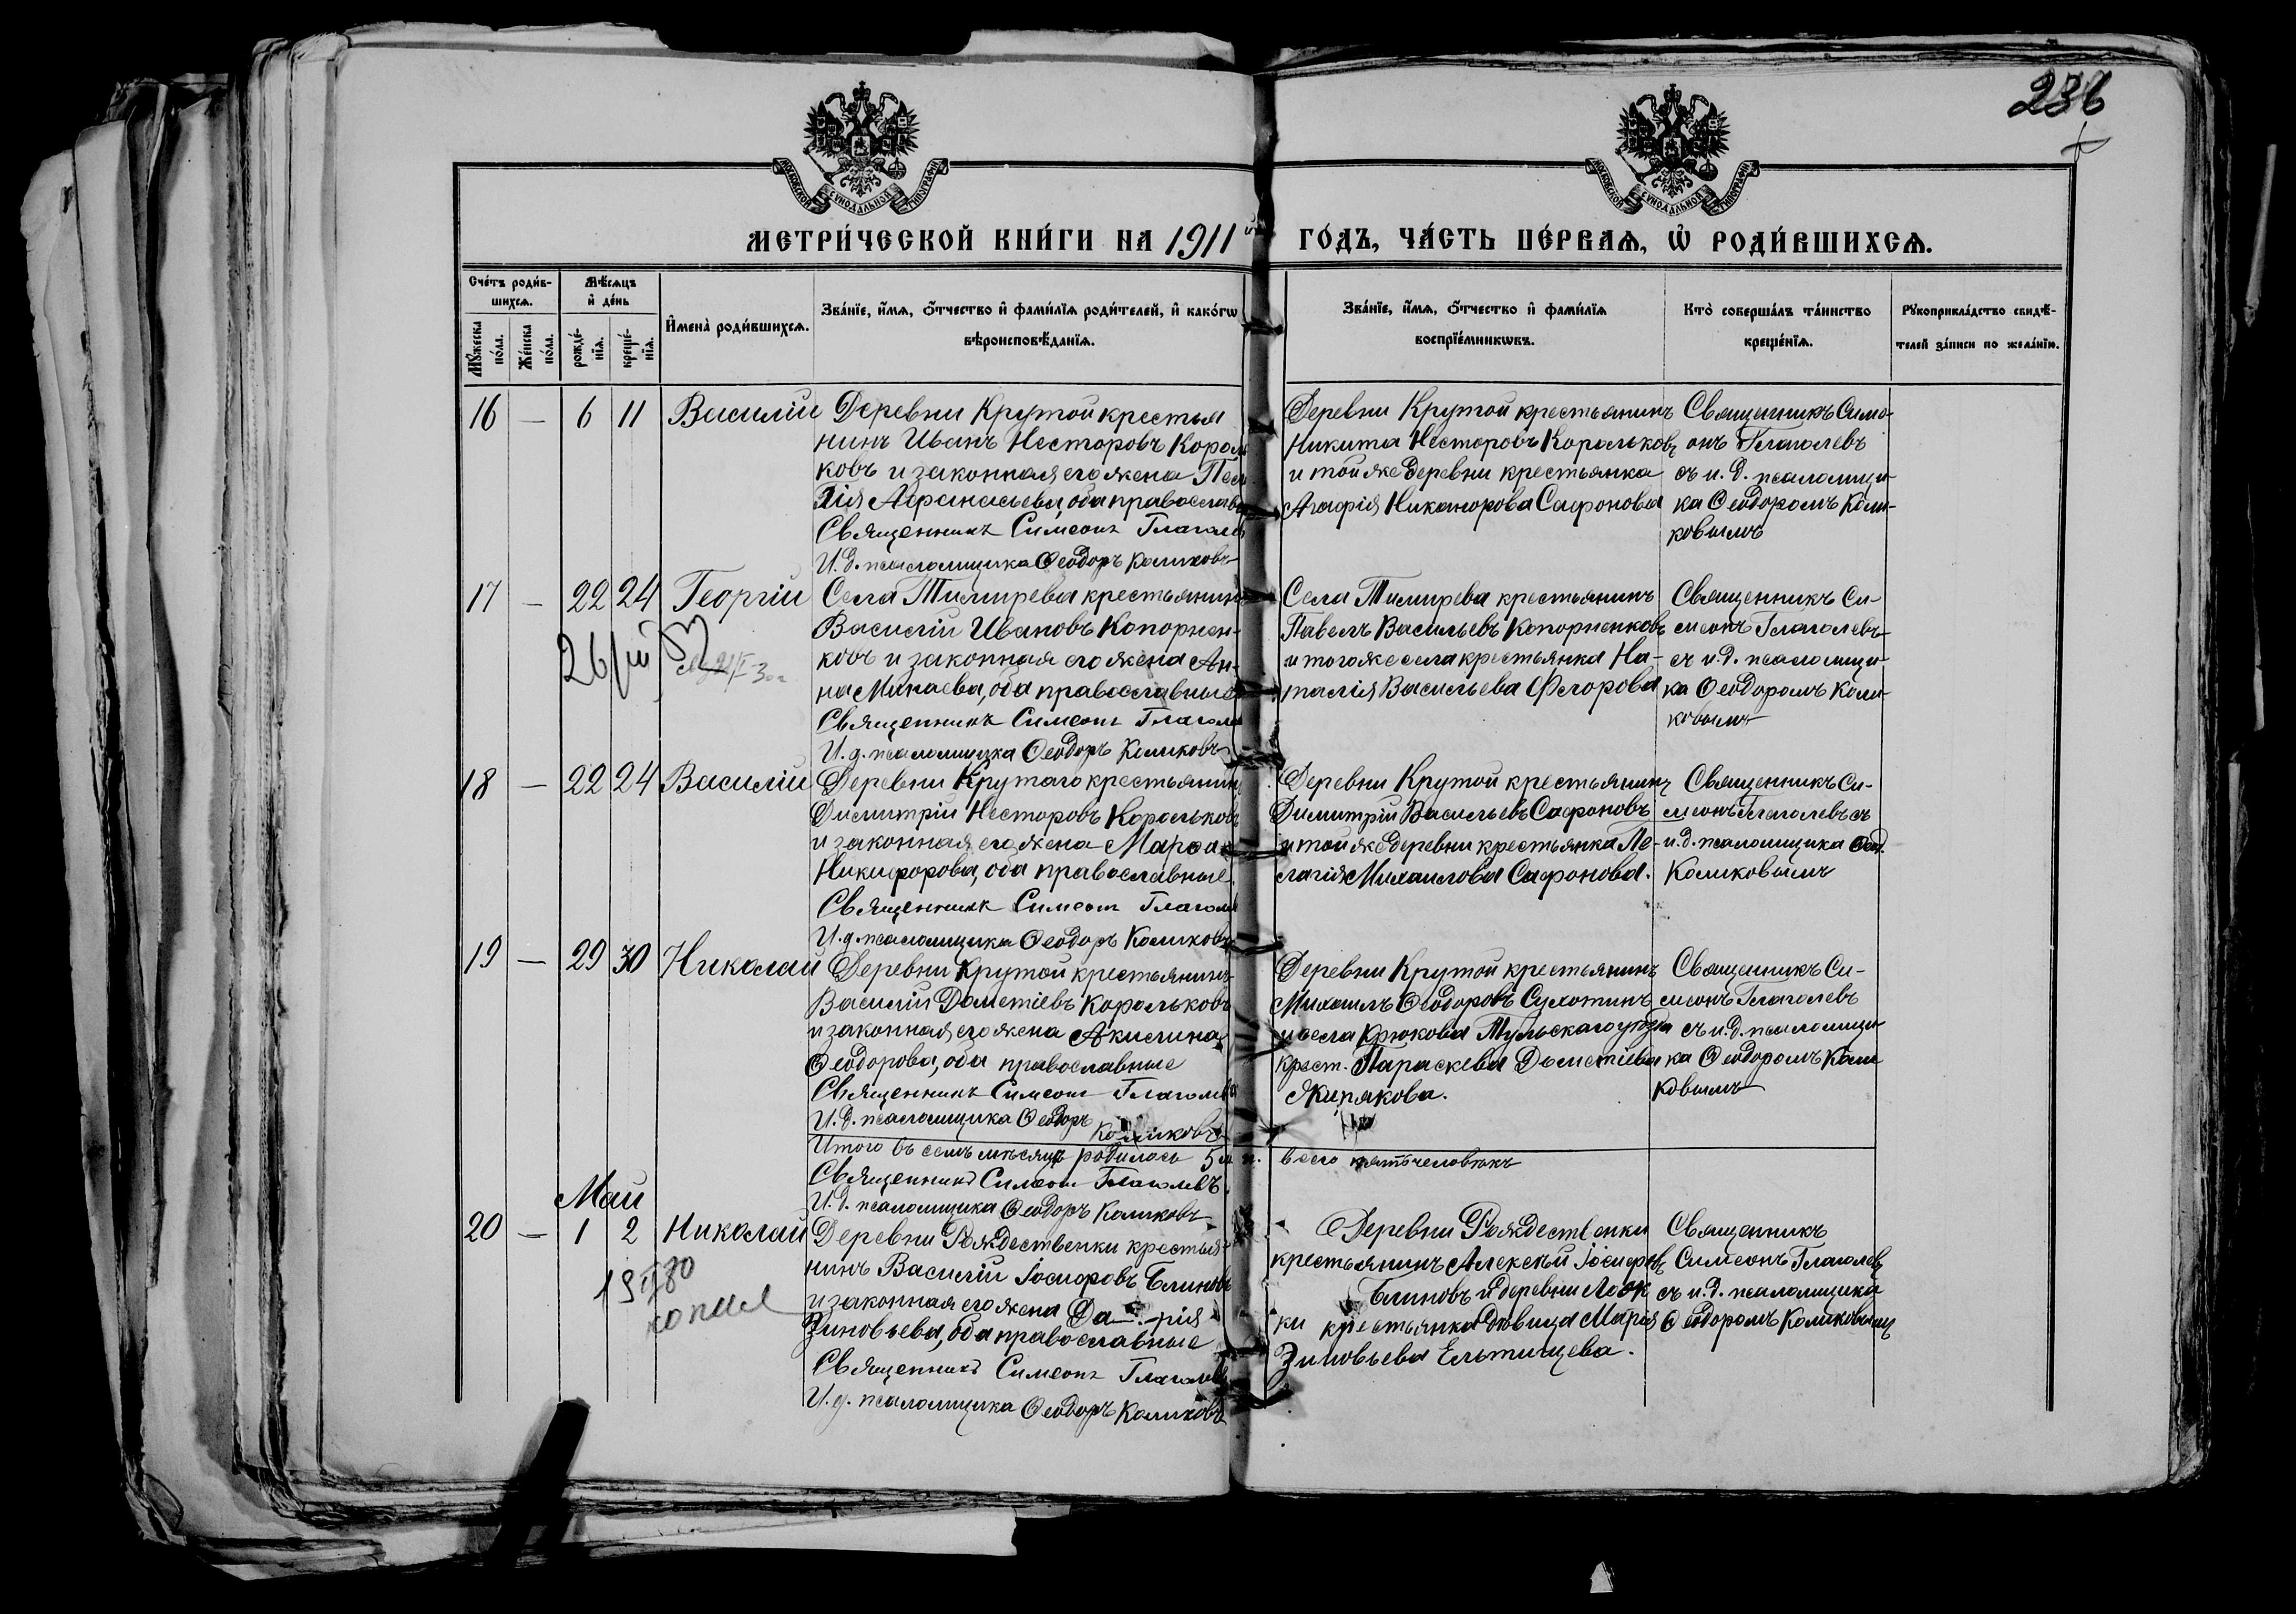 236
МОСКОВСКОЙ СѴНОДАЛЬНОЙ ТИПОГРАФІИ
МОСКОВСКОЙ СѴНОДАЛЬНОЙ ТИПОГРАФІИ
МЕТРИ́ЧЕСКОЙ КНИ́ГИ НА 1911й ГО́ДЪ, ЧА́СТЬ ПЕ́РВАѦ, Ѡ҆ РОДИ́ВШИХСѦ.
Сче́тъ роди́в-
шихсѧ.
Мѣ́сѧцъ
и҆ де́нь
Мꙋ́жеска по́ла.
Же́нска по́ла.
рожде́-
нїѧ.
креще́-
нїѧ.
И҆мена̀ роди́вшихсѧ.
Зва́нїе, и҆́мѧ, ѻ҆́тчество и҆ фами́лїѧ роди́телей, и҆ како́гѡ
вѣроисповѣ́данїѧ.
Зва́нїе, и҆́мѧ, ѻ҆́тчество и҆ фами́лїѧ
воспрїе́мникѡвъ.
Кто̀ соверша́лъ та́инство
креще́нїѧ.
Рꙋкоприкла́дство свидѣ́-
телей за́писи по жела́нїю.
16 — 6 11 Василій
Деревни Крутой крестья
нинъ Иванъ Несторовъ Король
ковъ и законная его жена Пела
гія Аѳанасьева, оба православн
Священникъ Симеонъ Глаголе
И. д. псаломщика Ѳеодоръ Коликовъ
Деревни Крутой крестьянинъ
Никита Несторовъ Корольковъ
и той же деревни крестьянка
Агафія Никанорова Сафонова
Священникъ Симе-
онъ Глаголевъ
съ и. д. псаломщи-
ка Ѳеодоромъ Коли-
ковымъ
17 — 22 24 Георгій
26/III
Села Тимирева крестьянинъ
Василій Ивановъ Копорнен-
ковъ и законная его жена Ан-
на Минаева, оба православные
Священникъ Симеонъ Глаголе
И. д. псаломщика Ѳеодоръ Коликовъ
Села Тимирева крестьянинъ
Павелъ Васильевъ Копорненковъ
и того же села крестьянка На-
талія Васильева Фегорова
Священникъ Си-
меонъ Глаголевъ
съ и. д. псаломщи-
ка Ѳеодоромъ Коли-
ковымъ
18 — 22 24 Василій
Деревни Крутаго крестьянин
Димитрій Несторовъ Корольковъ
и законная его жена Марѳа
Никифорова, оба православные.
Священникъ Симеонъ Глаголе
И. д. псаломщика Ѳеодоръ Коликовъ
Деревни Крутой крестьянинъ
Димитрій Васильевъ Сафоновъ
и той же деревни крестьянка Пе-
лагія Михаилова Сафонова.
Священникъ Си-
меонъ Глаголевъ съ
и. д. псаломщика Ѳеод.
Коликовымъ
19 — 29 30 Николай
Деревни Крутой крестьянинъ
Василій Дометіевъ Корольковъ
и законная его жена Акилина
Ѳеодорова, оба православные
Священникъ Симеонъ Глаголев
И. д. псаломщика Ѳеодоръ
Коликовъ
Деревни Крутой крестьянинъ
Михаилъ Ѳеодоровъ Сухотинъ
и села Крюкова Тульскаго уѣзда
крест. Параскева Дометіева
Жирякова.
Священникъ Си-
меонъ Глаголевъ
съ и. д. псаломщи-
ка Ѳеодоромъ Коли
ковымъ
Итого въ семъ мѣсяцѣ родилось 5 м. п. всего пять человѣкъ
Священникъ Симеонъ Глаголевъ.
И. д. псаломщика Ѳеодоръ Коликовъ
Май
20 — 1 2 Николай
копия
Деревни Рождественки крестья-
нинъ Василій Іосифовъ Блиновъ
и законная его жена Да рія
Зиновьева, оба православные
Священникъ Симеонъ Глаголевъ
И. д. псаломщика Ѳеодоръ Коликовъ
Деревни Рождественки
крестьянинъ Алексѣй Іосифовъ
Блиновъ и деревни
ки крестьянка дѣвица Марія
Зиновьева Ельтищева.
Священникъ
Симеонъ Глаголевъ
съ и. д. псаломщика
Ѳеодоромъ Коликовымъ